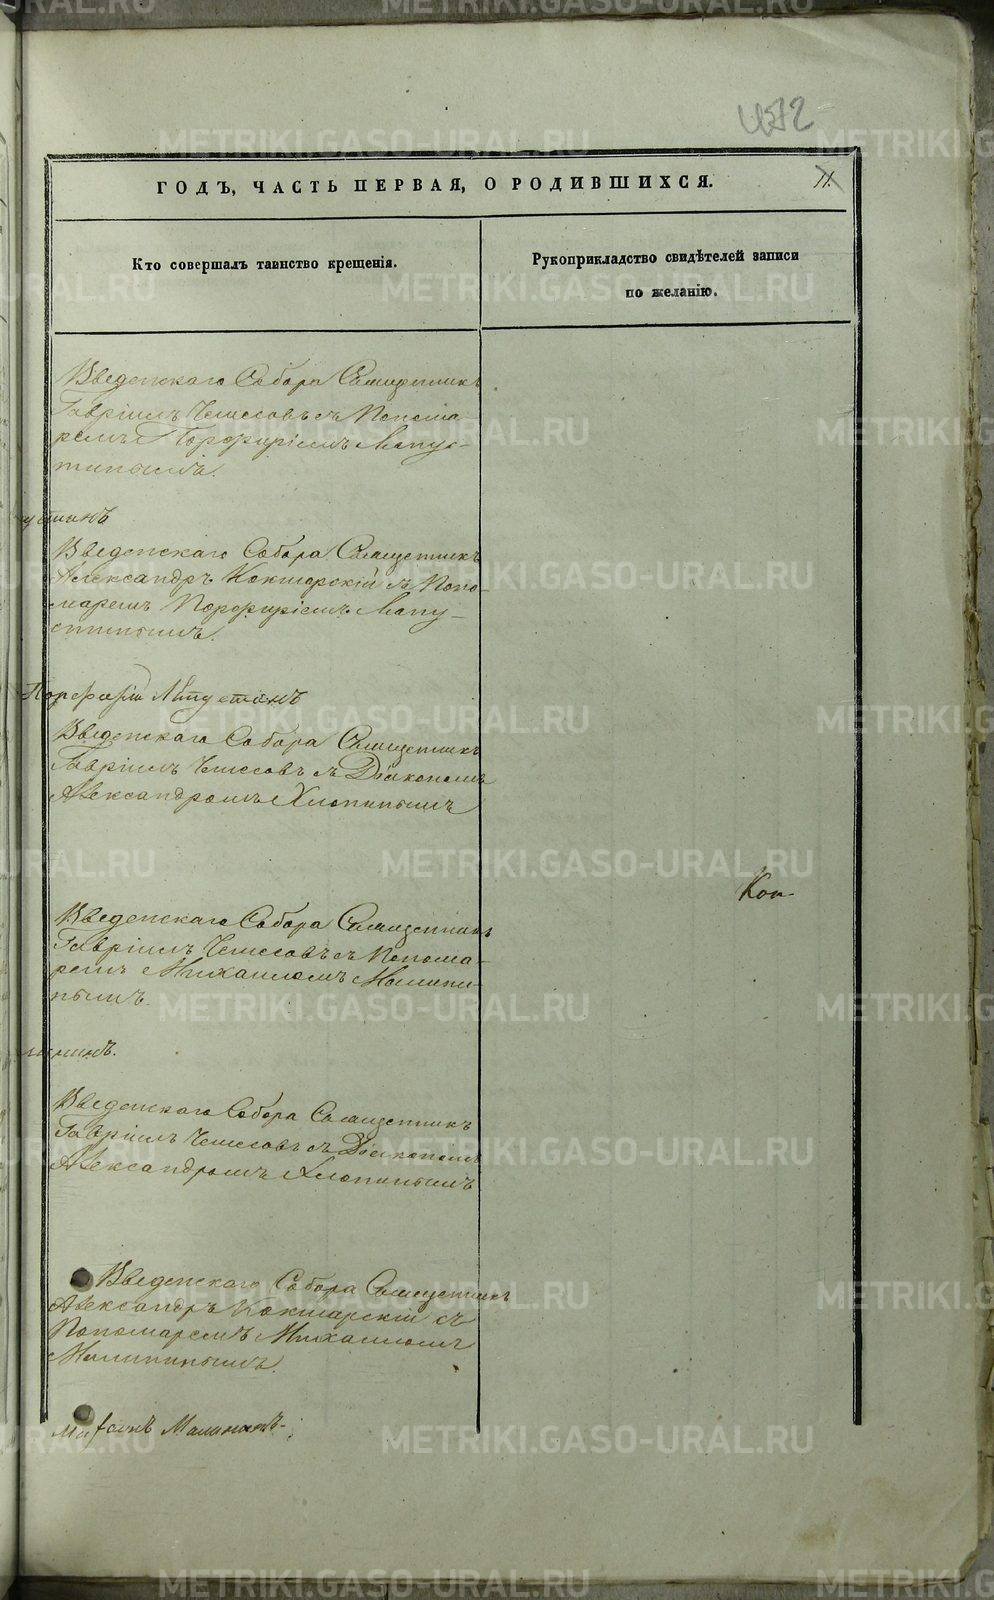 472
ГОДЪ, ЧАСТЬ ПЕРВАЯ, О РОДИВШИХСЯ.
11.
Кто совершалъ таинство крещенія.
Рукоприкладство свидѣтелей записи
по желанію.
Введенскаго Собора Священникъ
Гавріилъ Чемесовъ съ Понома-
ремъ Порфиріемъ Лапус-
тинымъ.
устинъ
Введенскаго Собора Священникъ
Александръ Кокшарскій съ Поно-
маремъ Порфиріемъ Лапу-
стинымъ.
Порфирій Лапустинъ
Введенскаго Собора Священникъ
Гавріилъ Чемесовъ съ Діакономъ
Александромъ Хлопинымъ
Коп
Введенскаго Собора Священникъ
Гавріилъ Чемесовъ съ Понома-
ремъ Михаиломъ Малини-
нымъ.
лининъ.
Введенскаго Собора Священникъ
Гавріилъ Чемесовъ съ Діакономъ
Александромъ Хлопинымъ
Введенскаго Собора Священникъ
Александръ Кокшарскій съ
Пономаремъ Михаиломъ
Малининымъ.
Малининъ
METRIKI.GASO-URAL.RU